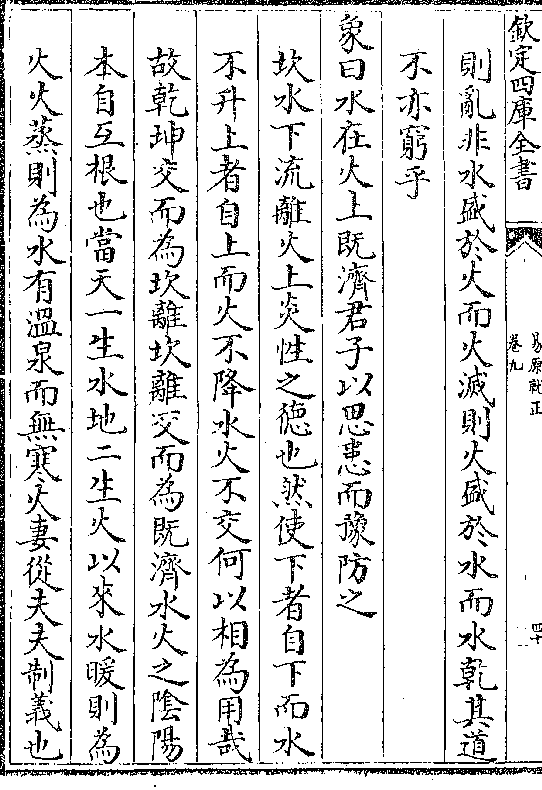 欽定四庫全書
易原就正
卷九
四十
則亂非水盛於火而火滅則火盛於水而水乾其道
不亦窮乎
象曰水在火上既濟君子以思患而豫防之
坎水下流離火上炎性之德也然使下者自下而水
不升上者自上而火不降水火不交何以相為用哉
故乾坤交而為坎離坎離交而為既濟水火之陰陽
本自互根也當天一生水地二生火以來水暖則為
火火蒸則為水有溫泉而無寒火妻從夫夫制義也